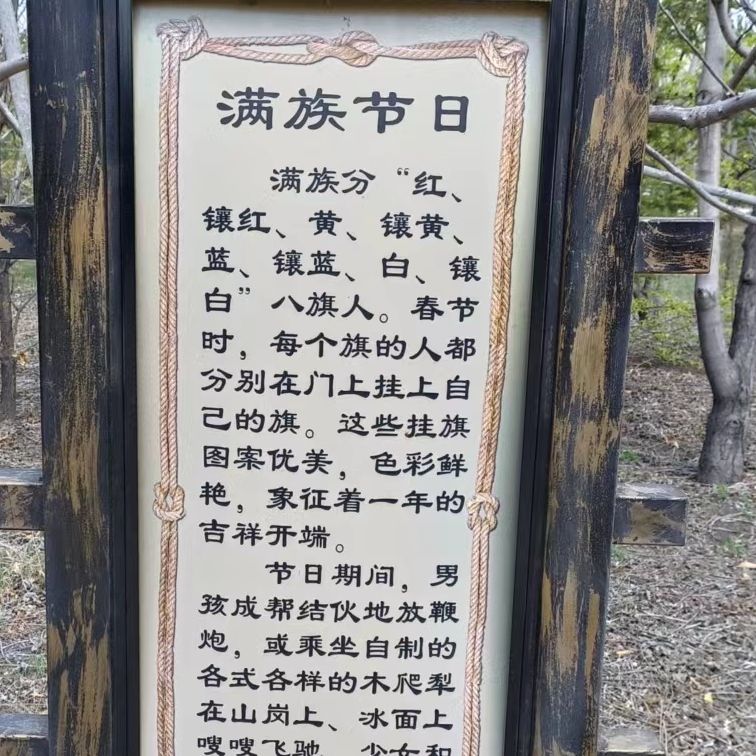 满族节日
满族分“红、
镶红、黄、镶黄、
蓝、镶蓝、白、镶
白”八旗人。春节
时，每个旗的人都
分别在门上挂上自
己的旗。这些挂旗
图案优美，色彩鲜
艳，象征着一年的
吉祥开端。
节日期间，男
孩成帮结伙地放鞭
炮，或乘坐自制的
各式各样的木爬犁
在山岗上、冰面上
嗖嗖飞驰。少女和